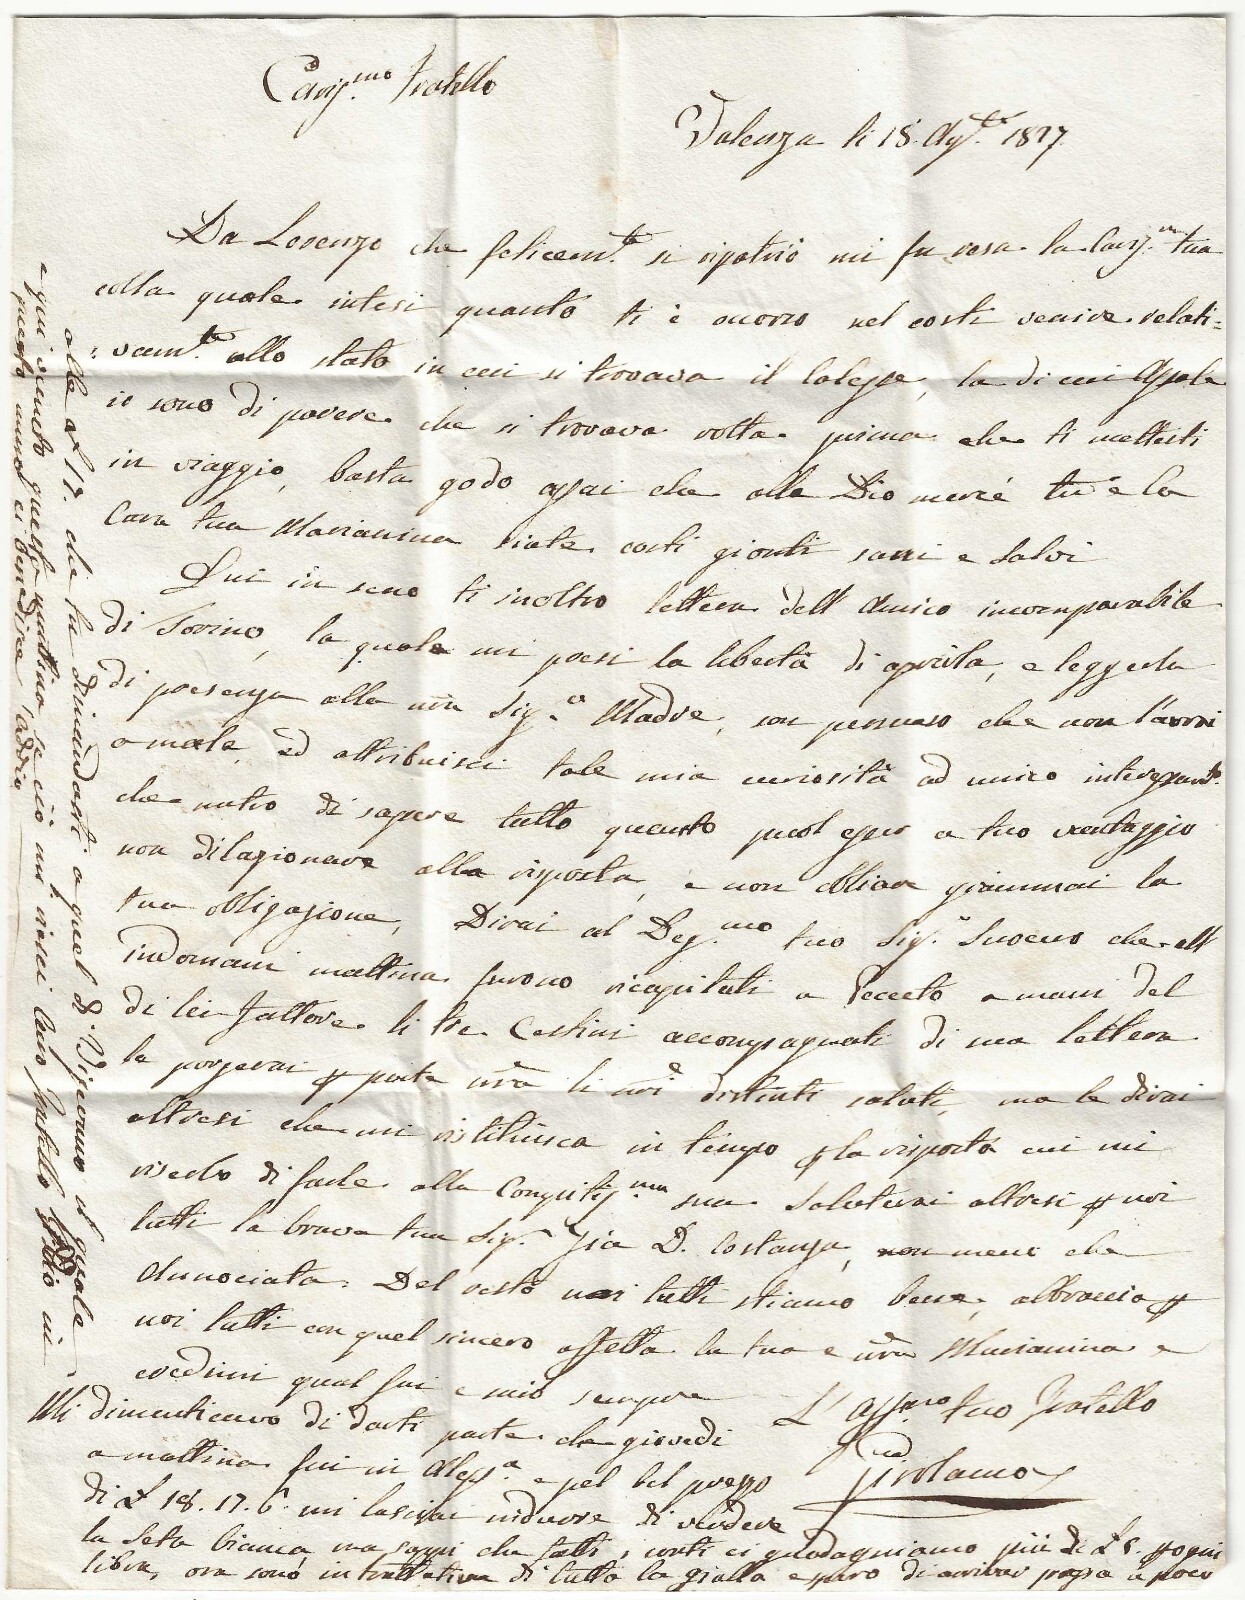 Cariss.mo Fratello
Valenza li 18. Ag.to 1817.
Da Lorenzo che felicem.te si ripatriò mi fu resa la Cariss.ma tua
colla quale intesi quanto ti è occorso nel costì venire relati=
vam.te allo stato in cui si trovava il Calesse, la di cui Assale
io sono di parere che si trovava rotta prima che ti mettesti
in viaggio, basta godo assai che alla Dio mercé tu e la
Cara tua Marianina siate costì gionti sani e salvi
Qui in seno ti inoltro lettera dell'Amico incomparabile
di Torino, la quale mi presi la libertà di aprirla, e leggerla
di presenza alla nra Sig.a Madre, son persuaso che non l'avrai
a male, ed attribuisci tale mia curiosità ad unico interessam.to
che nutro di sapere tutto quanto puol esser a tuo vantaggio
non dilazionare alla risposta, e non obliare giammai la
tua obligazione, Dirai al Deg.mo tuo Sig.r Suocero che all'
indomani mattina furono ricapitati a Pecetto a mani del
di lei Fattore li tre Cestini accompagnati di sua lettera
la porgerai p parte nra li nri distinti saluti, ma le dirai
altresì che mi ristituisca in tempo p la risposta cui mi
riserbo di farle alla Compitiss.ma sua Saluterai altresì p noi
tutti la brava tua Sig.ra Zia D. Costanza, non meno che
Annociata. Del resto noi tutti stiamo bene, abbraccia p
noi tutti con quel sincero affetto la tua e nra Marianina e
credimi qual fui e mio sempre
L' Aff.mo tuo Fratello
Girolamo
Mi dimenticavo di darti parte che giovedì
a mattina fui in Aless.a e pel bel prezzo
di L 18. 17. 6. mi lasciai indurre di vendere
la Seta bianca ma sappi che fatti i conti ci guadagniamo più di L 5. p ogni
libra, ora sono in trattativa di tutta la gialla e spero di arrivar presso a poco
alle L 17. che ha dimandati a quel di Vigevano il quale
è qui venuto questa mattina, se ciò mi riesci caro Fratello Iddio in
questo annol ci benedisce, addio